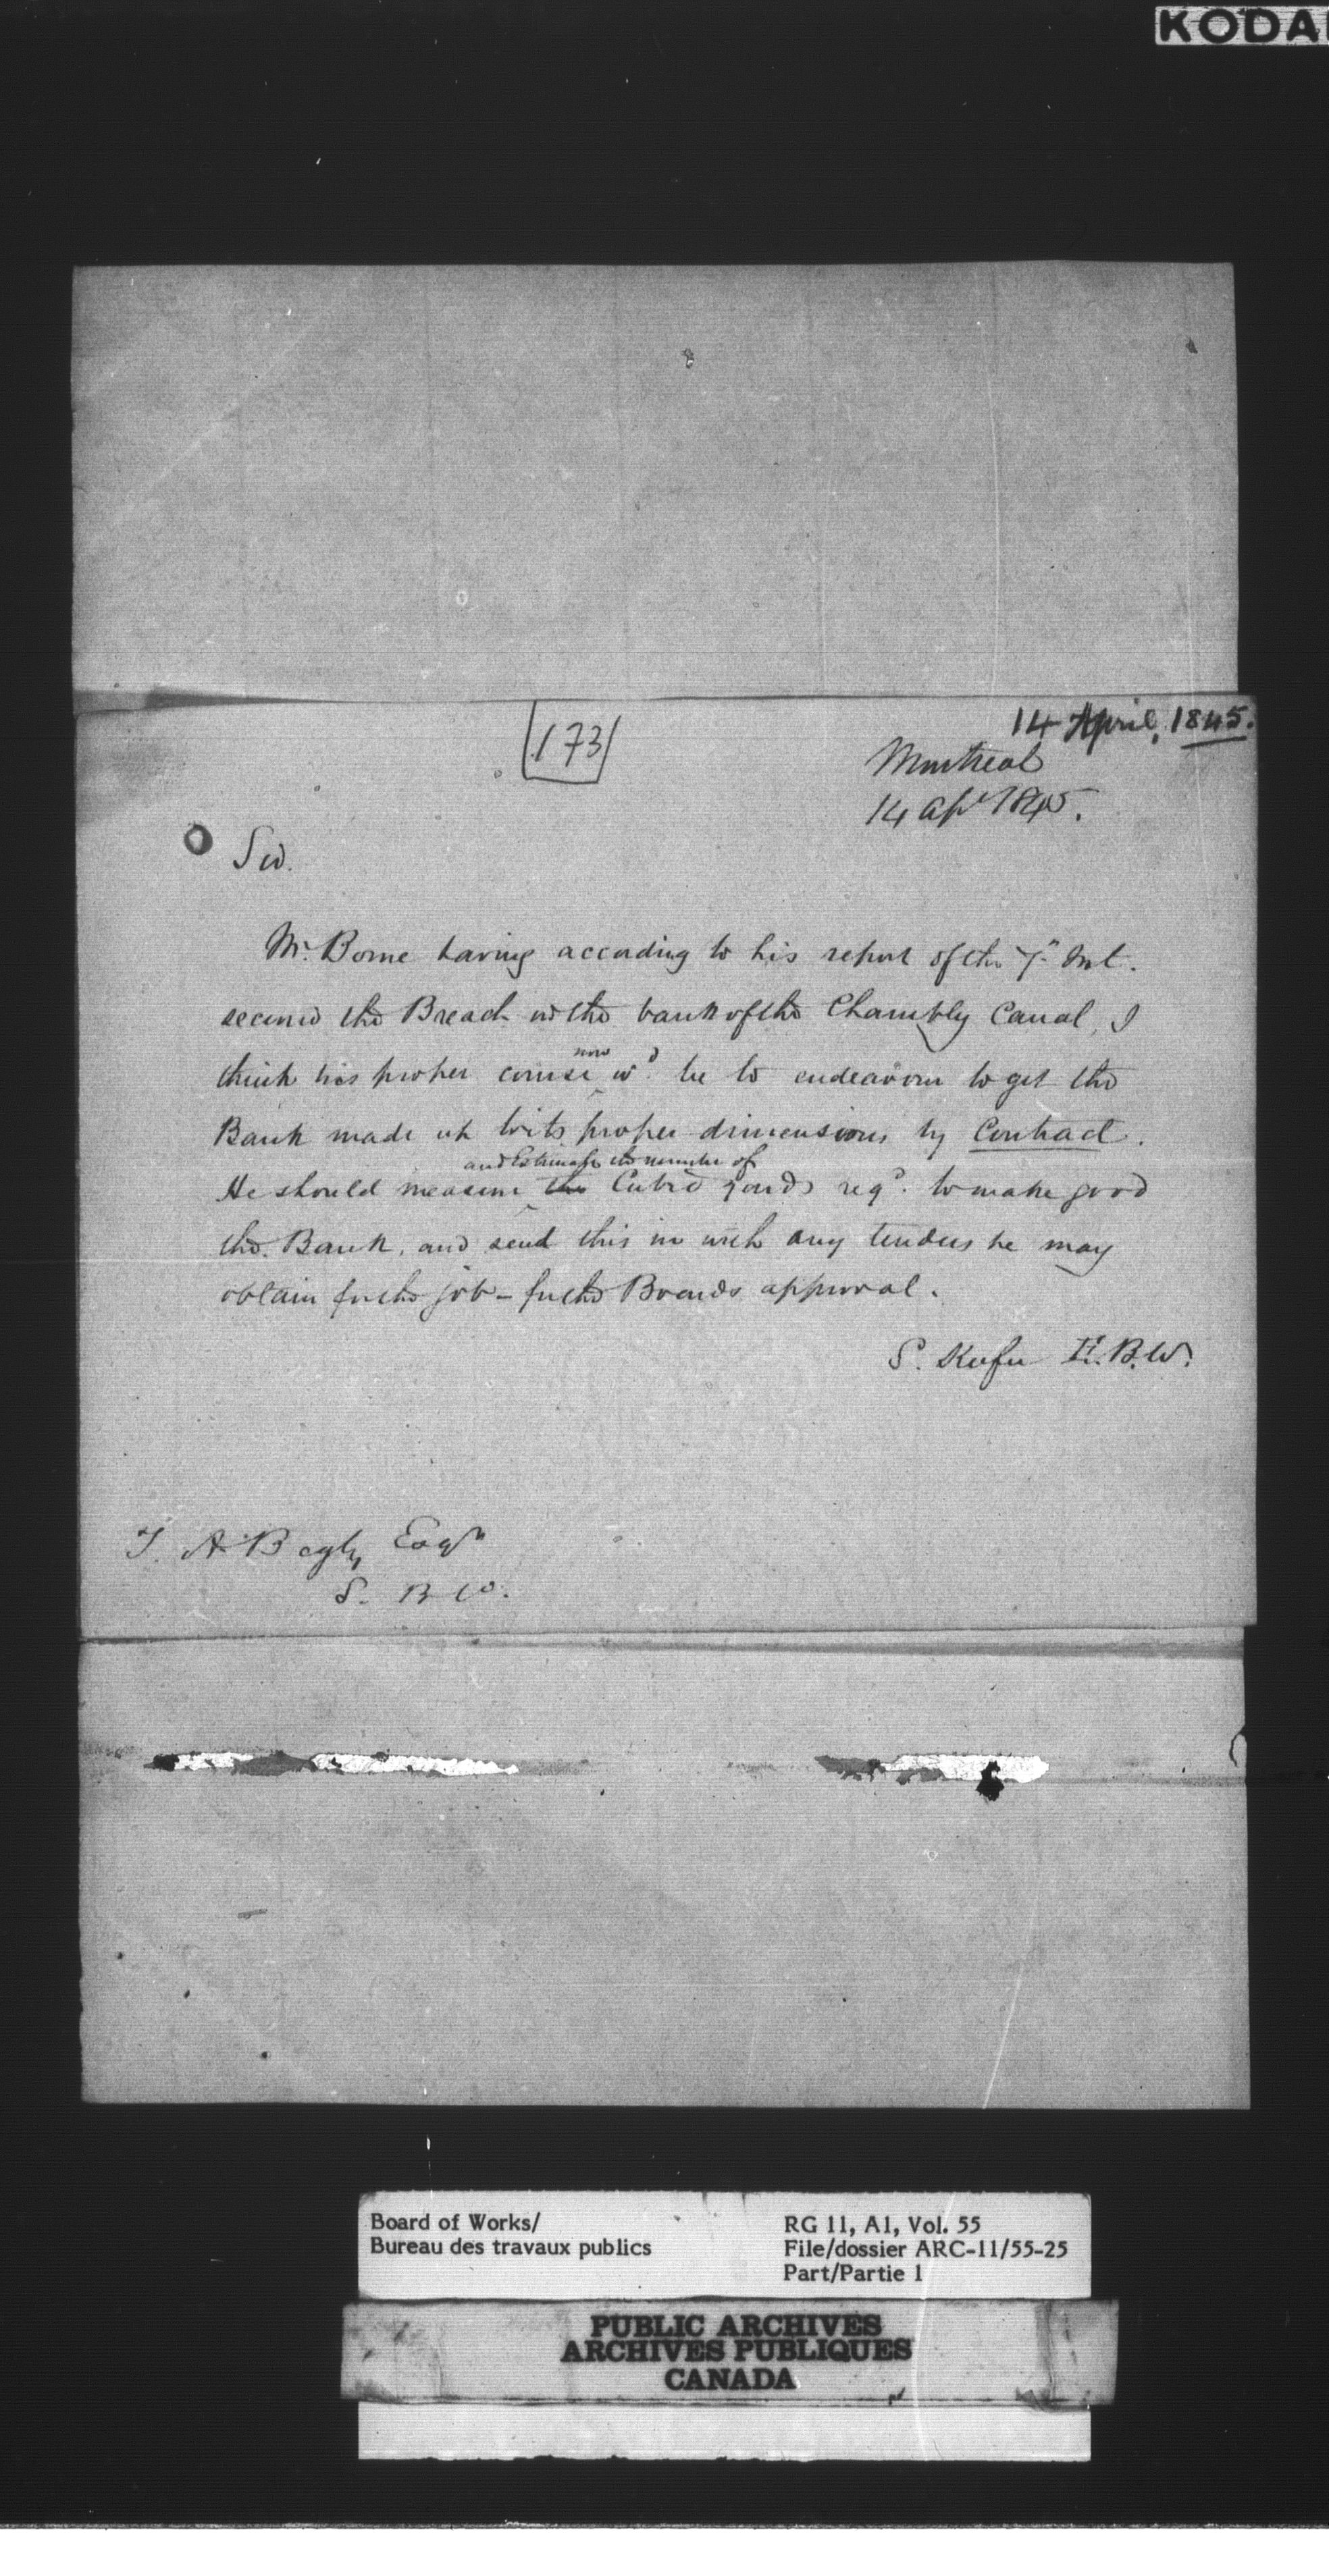 KODA
14 April, 1845.
173
Montreal
14 Apl 1845.
Sir.
Mr. Borne having according to his report of the 7th Inst.
secured the Breach in the bank of the Chambly Canal, I
now
think his proper course wd. be to endeavour to get the
Bank made up to its proper dimensions by Contract.
and Estimate the number of
He should measure the Cubic yards reqd. to make good
the Bank, and send this in with any tenders he may
obtain for the job - for the Boards approval.
S. Keefer E.B.W.
T. A Begly Esqr
S. B W.
Board of Works/
Bureau des travaux publics
RG 11, A1, Vol. 55
File/dossier ARC-11/55-25
Part/Partie 1
PUBLIC ARCHIVES
ARCHIVES PUBLIQUES
CANADA